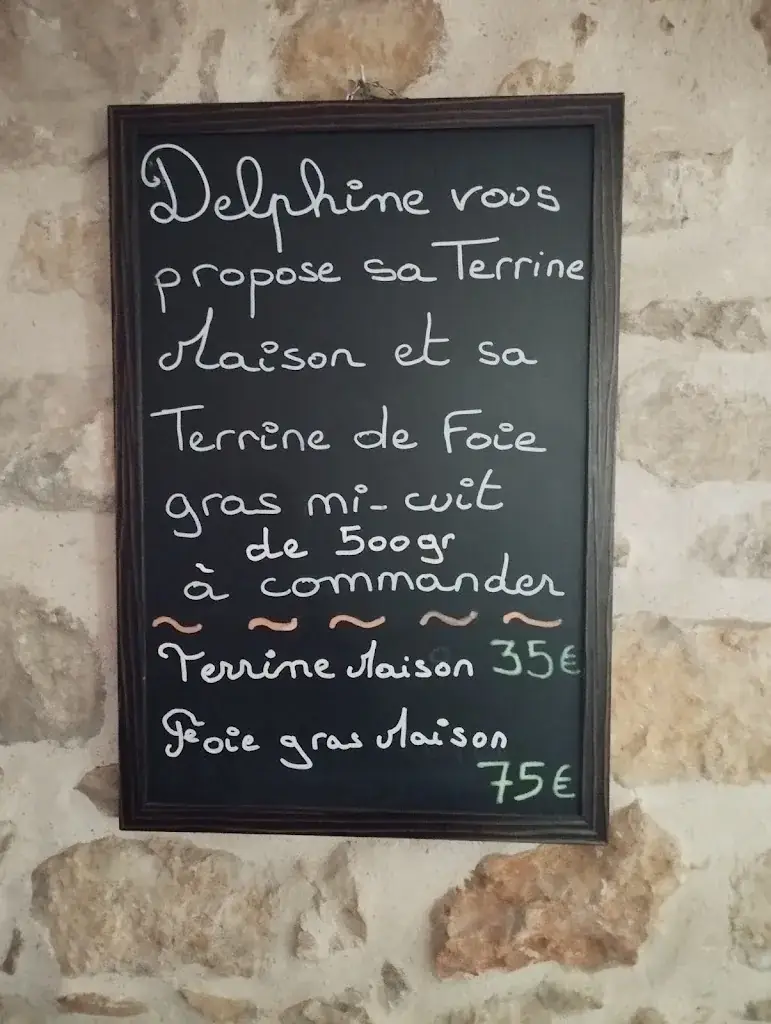 Delphine vous
propose sa Terrine
Maison et sa
Terrine de Foie
gras mi-cuit
de 500gr
à commander
~ ~ ~ ~ ~
Terrine Maison 35€
Foie gras Maison
75€